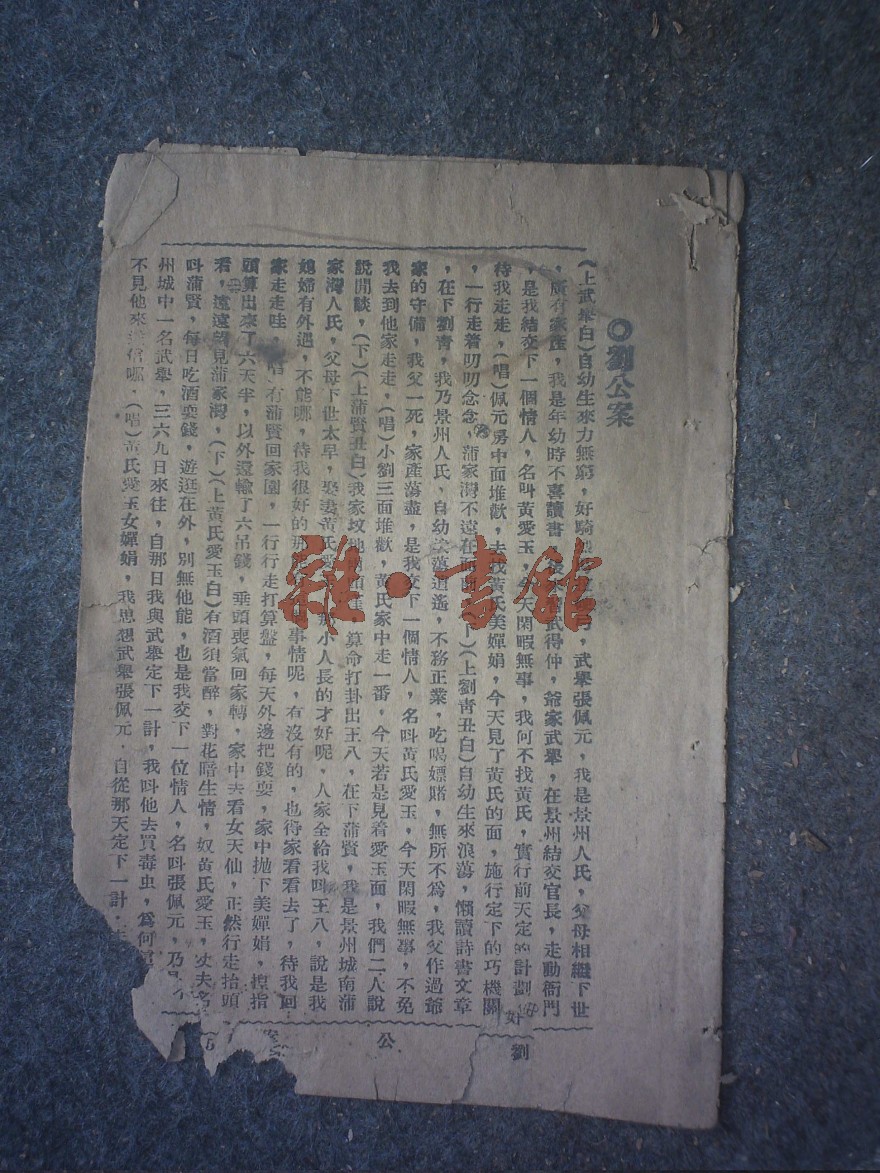 ◎劉公案
(上武舉白)自幼生來力無窮,好騎,武舉張佩元,我是景州人氏,父母相繼下世
,廣有家產,我是年幼時不喜讀書,武得仲,爺家武舉,在景州結交官長,走動衙門
,是我結交下一個情人,名叫黃愛玉,今天閑暇無事,我何不找黃氏,實行前天定的計劃
待我走走,(唱)佩元房中面堆歡,去找黃氏美嬋娟,今天見了黃氏的面,施行定下的巧機關
,一行走着叨叨念念,蒲家灣不遠在面(下)(上劉青丑白)自幼生來浪蕩,懶讀詩書文章
,在下劉青,我乃景州人氏,自幼蕩逍遙,不務正業,吃喝嫖賭,無所不為,我父作過爺
家的守備,我父一死,家產蕩盡,是我交下一個情人,名叫黃氏愛玉,今天閑暇無事,不免
我去到他家走走,(唱)小劉三面堆歡,黃氏家中走一番,今天若是見着愛玉面,我們二人說
說閒談,(下)(上蒲賢丑白)我家坟地,算命打卦出王八,在下蒲賢,我是景州城南蒲
家灣人氏,父母下世太早,娶妻黃氏愛,那小人長的才好呢,人家全給我叫王八,說是我
媳婦有外遇,不能哪,待我很好的那,事情呢,有沒有的,也得家看看去了,待我回
家走走哇,(唱)有蒲賢回家園,一行行走打算盤,每天外邊把錢耍,家中拋下美嬋娟,揑指
頭算出來了六天半,以外還輸了六吊錢,垂頭喪氣回家轉,家中去看女天仙,正然行走抬頭
看,遠遠望見蒲家灣,(下)(上黃氏愛玉白)有酒須當醉,對花暗生情,奴黃氏愛玉,丈夫名
叫蒲賢,每日吃酒耍錢,遊逛在外,別無他能,也是我交下一位情人,名叫張佩元,乃是
州城中一名武舉,三六九日來往,自那日我與武舉定下一計,我叫他去買毒虫,為何還
不見他來信喔,(唱)黃氏愛玉女嬋娟,我思想武舉張佩元,自從那天定下一計,
劉 公 案
雜·書館